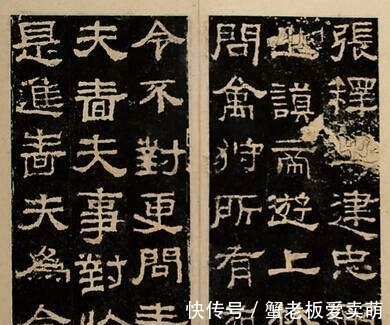 張釋建忠
之謨帝遊上
問禽狩所有
令不對更問嗇
夫嗇夫事對於
是進嗇夫為令
快传号 / 蟹老板爱卖萌